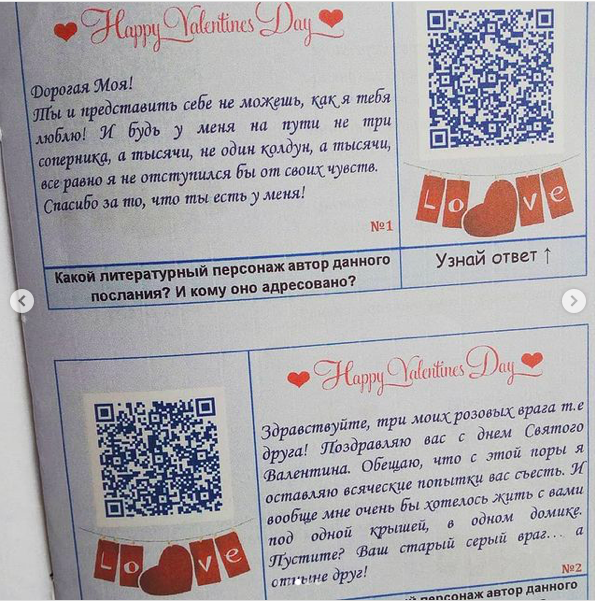 Happy Valentines Day
Дорогая Моя!
Ты и представить себе не можешь, как я тебя
люблю! И будь у меня на пути не три
соперника, а тысячи, не один колдун, а тысячи,
все равно я не отступился бы от своих чувств.
Спасибо за то, что ты есть у меня!
№1
Love
Какой литературный персонаж автор данного
послания? И кому оно адресовано?
Узнай ответ ↑
Happy Valentines Day
Здравствуйте, три моих розовых врага т.е
друга! Поздравляю вас с днем Святого
Валентина. Обещаю, что с этой поры я
оставляю всяческие попытки вас съесть. И
вообще мне очень бы хотелось жить с вами
под одной крышей, в одном домике.
Пустите? Ваш старый серый враг... а
отныне друг!
№2
Love
персонаж автор данного